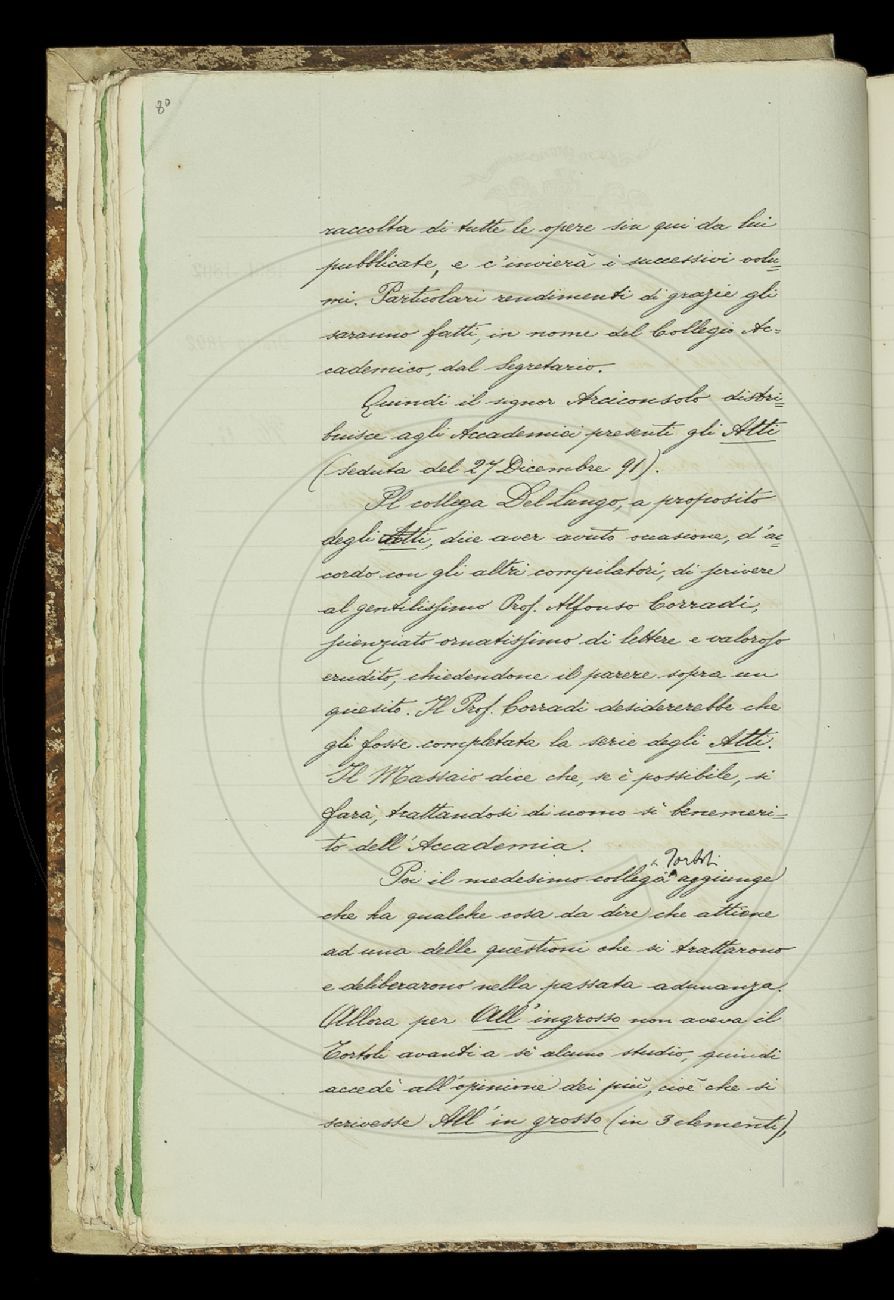 80
raccolta di tutte le opere sin qui da lui
pubblicate, e c'invierà i successivi volu=
mi. Particolari rendimenti di grazie gli
saranno fatti, in nome del Collegio Ac=
cademico, dal Segretario.
Quindi il signor Arciconsolo distri=
buisce agli Accademici presenti gli Atti
(seduta del 27 Dicembre 91).
Il collega Del Lungo, a proposito
degli Atti, dice aver avuto occasione, d'ac=
cordo con gli altri compilatori, di scrivere
al gentilissimo Prof. Alfonso Corradi,
scienziato ornatissimo di lettere e valoroso
erudito, chiedendone il parere sopra un
quesito. Il Prof. Corradi desidererebbe che
gli fosse completata la serie degli Atti.
Il Massaio dice che, se è possibile, si
farà, trattandosi di uomo sì benemeri=
to dell'Accademia.
Tortoli
Poi il medesimo collega aggiunge
che ha qualche cosa da dire che attiene
ad una delle questioni che si trattarono
e deliberarono nella passata adunanza.
Allora per All'ingrosso non aveva il
Tortoli avanti a sè alcuno studio, quindi
accedè all'opinione dei più, cioè che si
scrivesse All'in grosso (in 3 elementi),